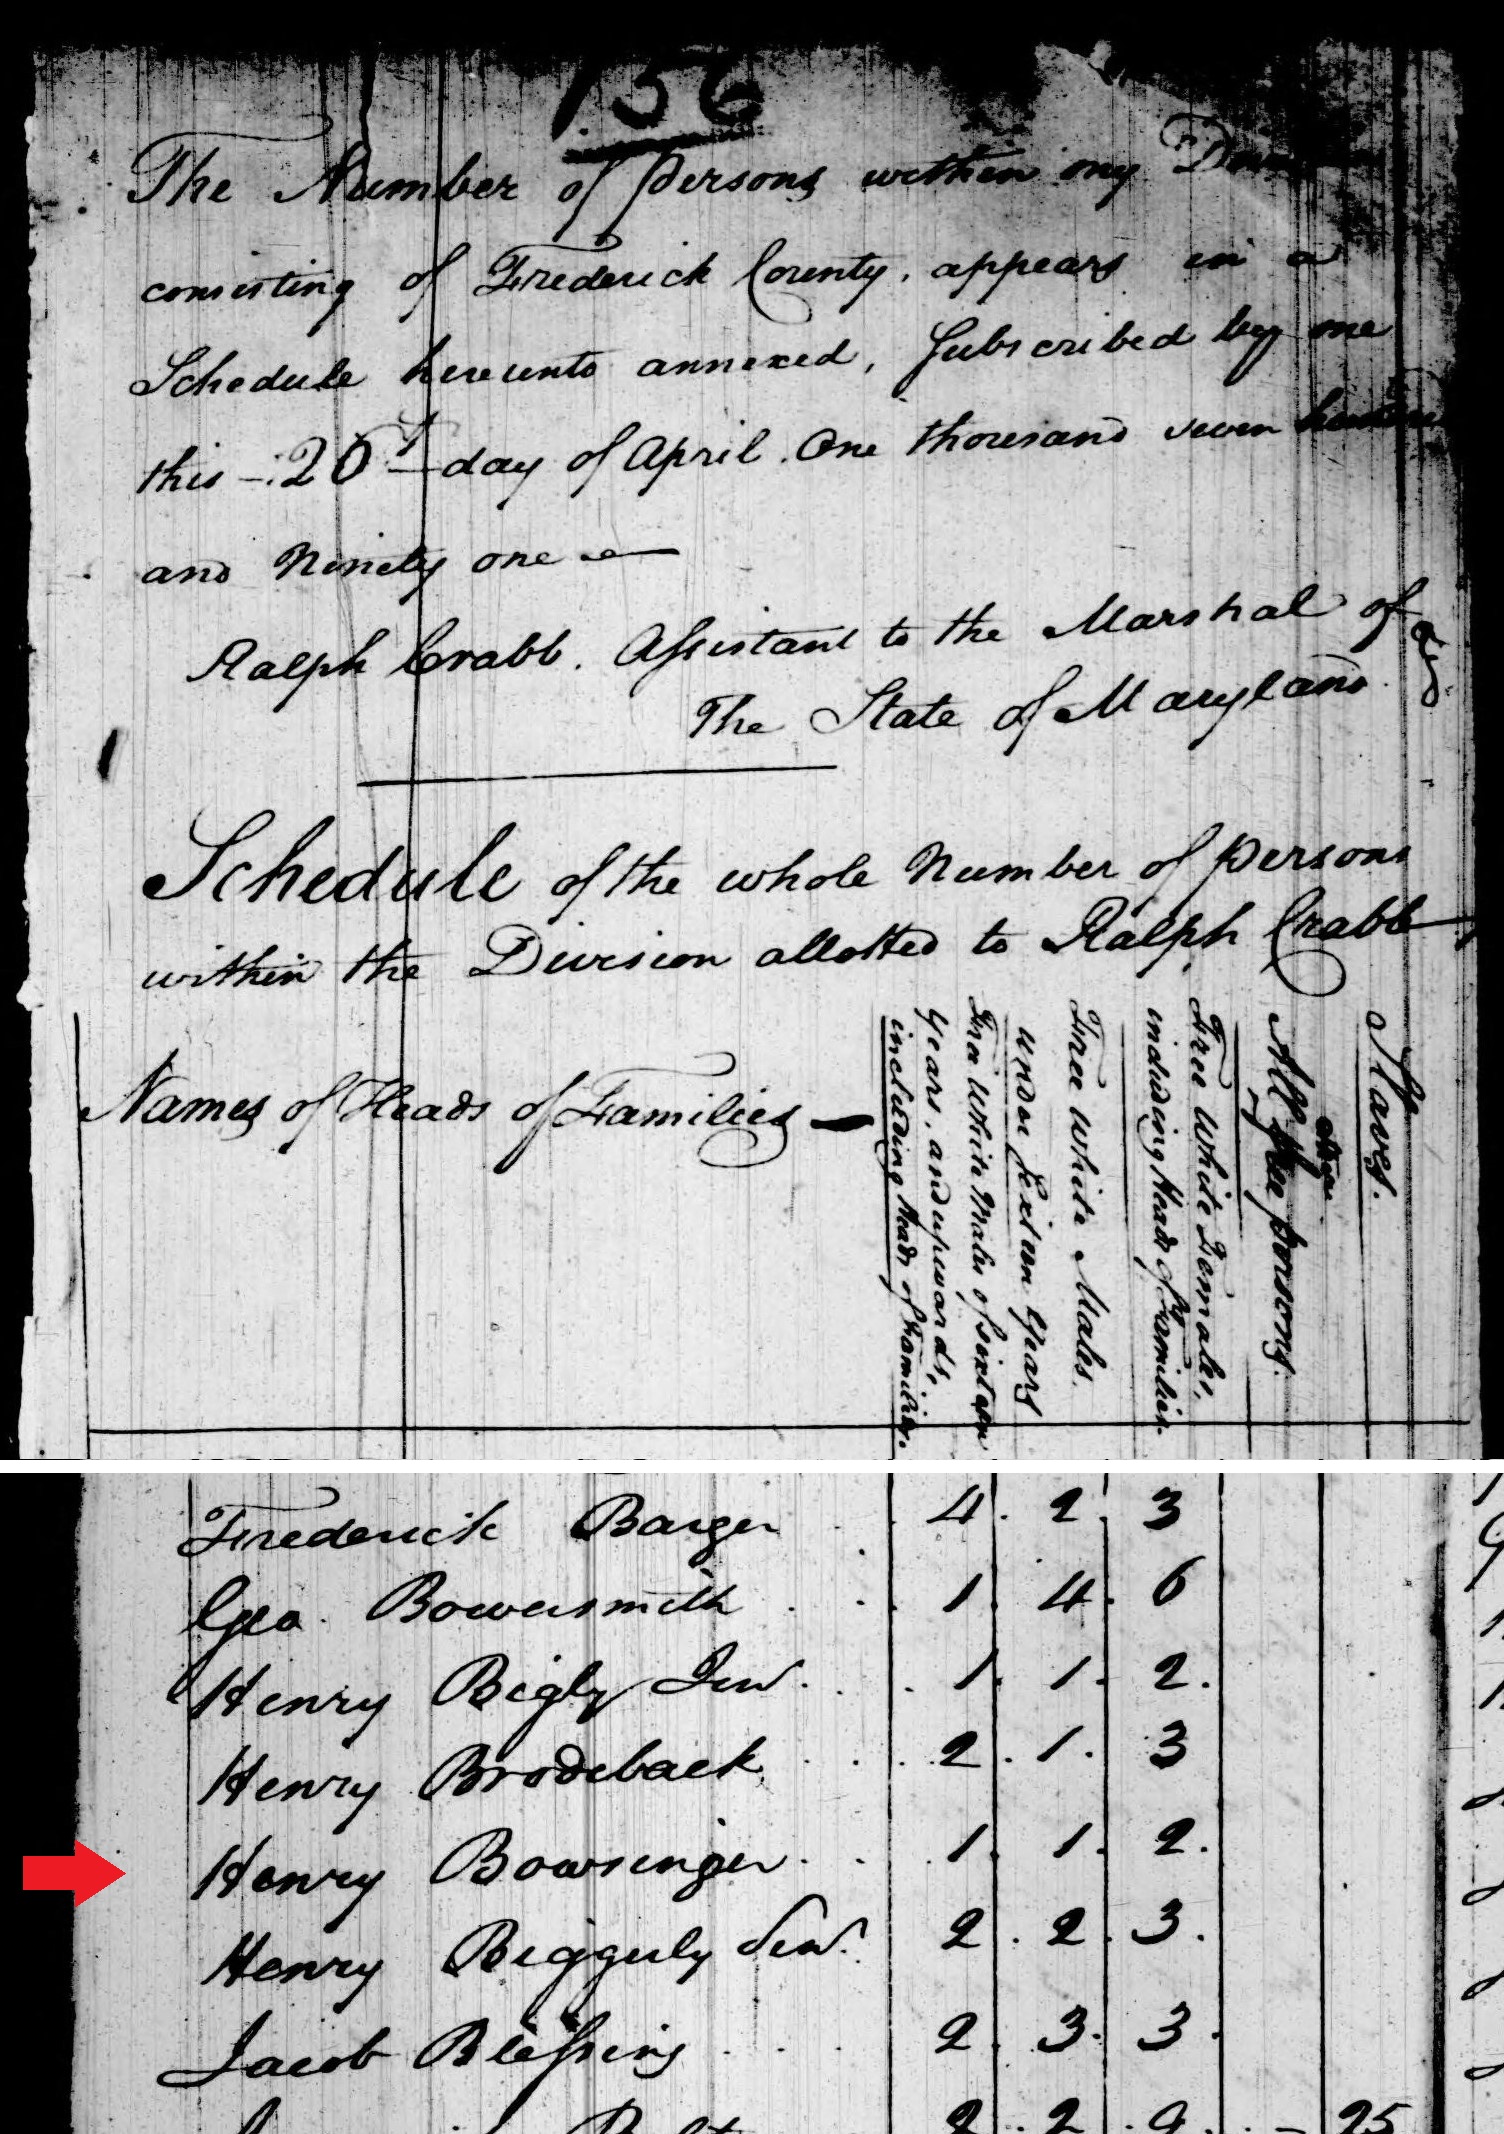 136
The Number of persons within my
consisting of Frederick County, appears in a
Schedule hereunto annexed, Subscribed by me
this 26th day of April One thousand seven hundred
and Ninety one
Ralph Crabb. Assistant to the Marshal of
The State of Maryland.
Schedule of the whole Number of persons
within the Division allotted to Ralph Crabb
Names of Heads of Families
Free White Males of sixteen
years, and upwards,
including Heads of Families.
Free White Males.
under Sixteen Years
Free White Females,
including Heads of Families.
All other free persons.
Slaves.
Frederick Barger 4 2 3
Geo. Bowersmith 1 4 6
Henry Bigly Jun. 1 1 2
Henry Brodeback 2 1 3
Henry Bowsinger 1 1 2
Henry Biggerly Sen. 2 2 3
Jacob Blessing 2 3 3
2 2 25